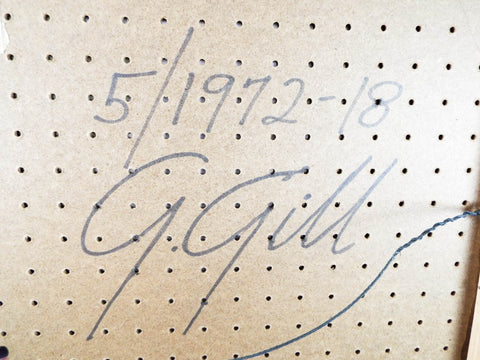 5/1972-18
G.Gill